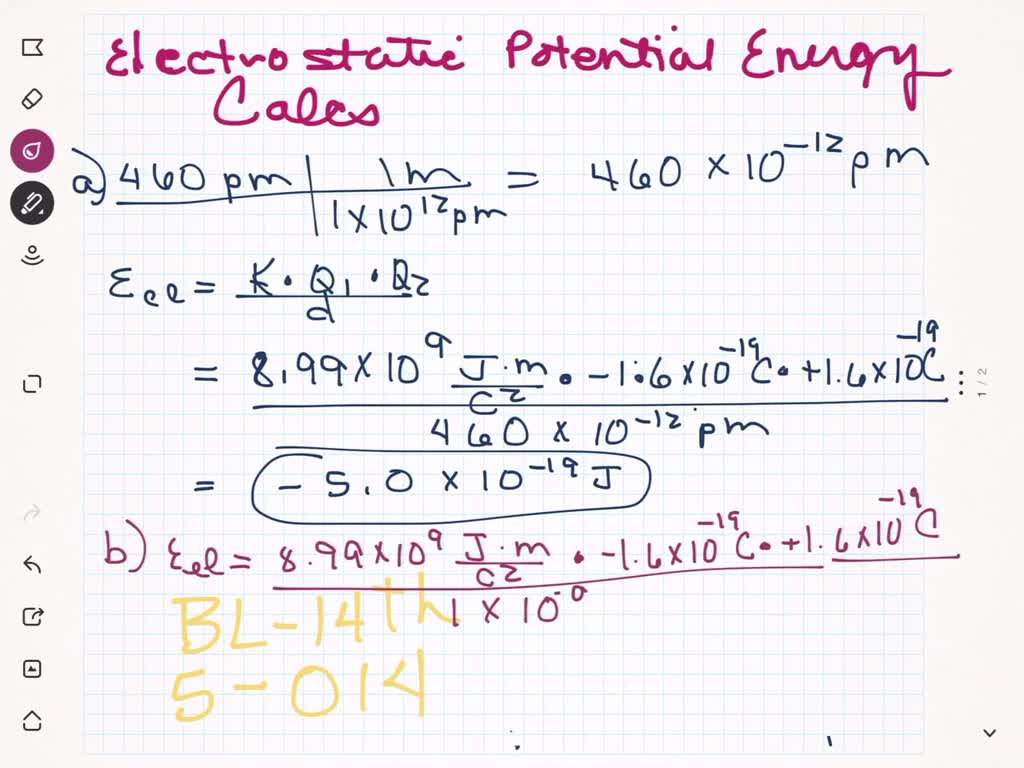 Electrostatic Potential Energy
Calcs
a) 460 pm | 1m = 460 × 10⁻¹² pm
1 × 10¹² pm
Eel = K · Q1 · Q2
d
= 8.99 × 10⁹ J·m · -1.6 × 10⁻¹⁹ C · +1.6 × 10⁻¹⁹ C
C²
460 × 10⁻¹² pm
= -5.0 × 10⁻¹⁹ J
b) Eel = 8.99 × 10⁹ J·m · -1.6 × 10⁻¹⁹ C · +1.6 × 10⁻¹⁹ C
C²
1 × 10⁻⁰
BL-14th
5-014
1 / 2